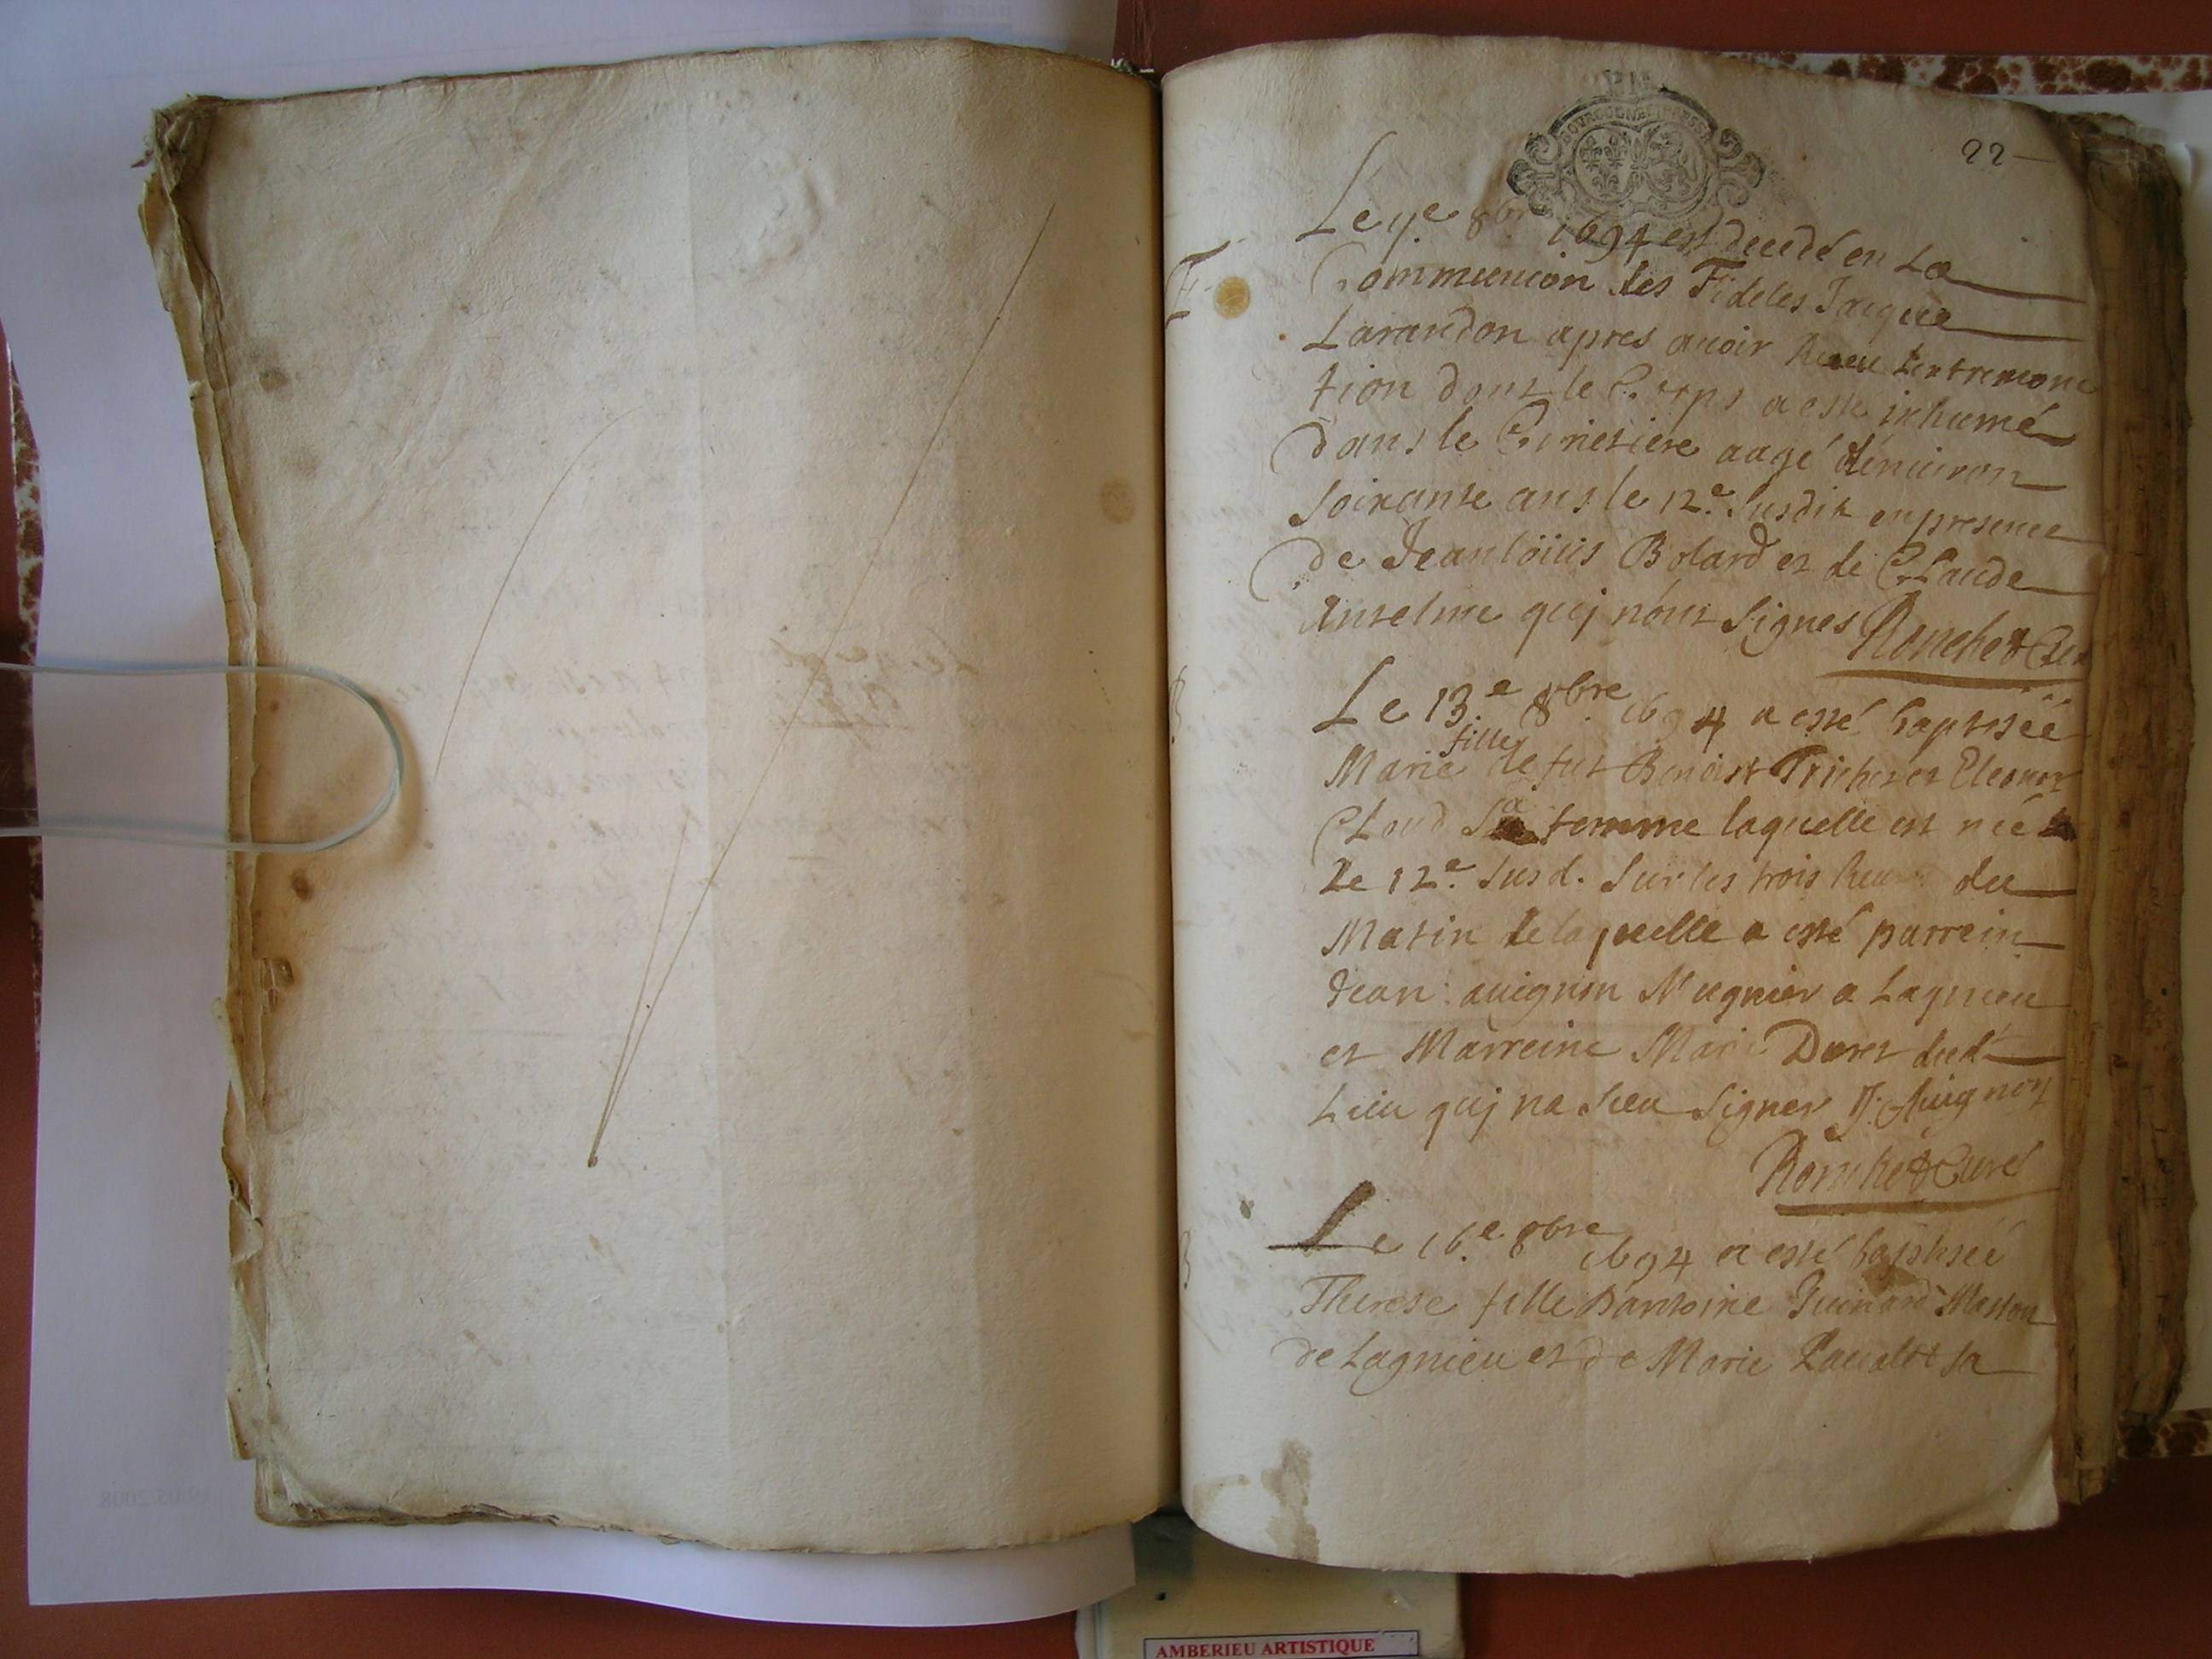 22
BOURGOGNE
Le 8bre 1694 est decedé en La
Communion des Fideles Jacque
Larandon apres auoir
tion dont le Corps a este inhumé
dans le Cimetiere aagé d'enuiron
soixante ans le 12e. susdit en presence
de Jean loüis Bolard et de Claude
Antelme quj n'ont signes Ronchet Curé
Le 13e 8bre 1694 a esté baptiseé
fille
Marie de fut Benoist Trichet et Eleonor
Cloud sa femme laquelle est neé
Le 12e. susd. sur les trois du
Matin de laquelle a esté parrein
Jean auignon Mugnier a Lagnieu
et Marreine Marie Duret dud
Lieu quj na sceu signer J. Auignon
Ronchet Curé
Le 16e. 8bre 1694 a esté baptiseé
Therese fille Dantoine Guinard Masson
de Lagnieu et de Marie sa
AMBERIEU ARTISTIQUE